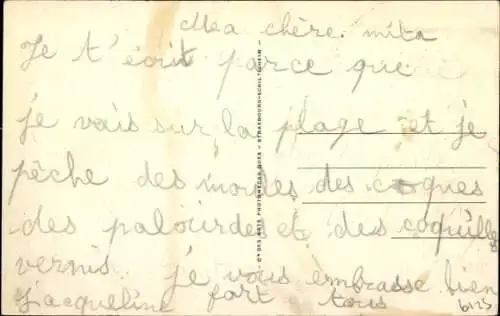 Ma chère mita
Je t'écrit parce que
je vais sur la plage et je
pêche des moules des coques
des palourdes et des coquilles
vernis. je vous embrasse bien
Jacqueline fort tous
6125
Cie DES ARTS PHOTOMECANIQUES - STRASBOURG-SCHILTIGHEIM